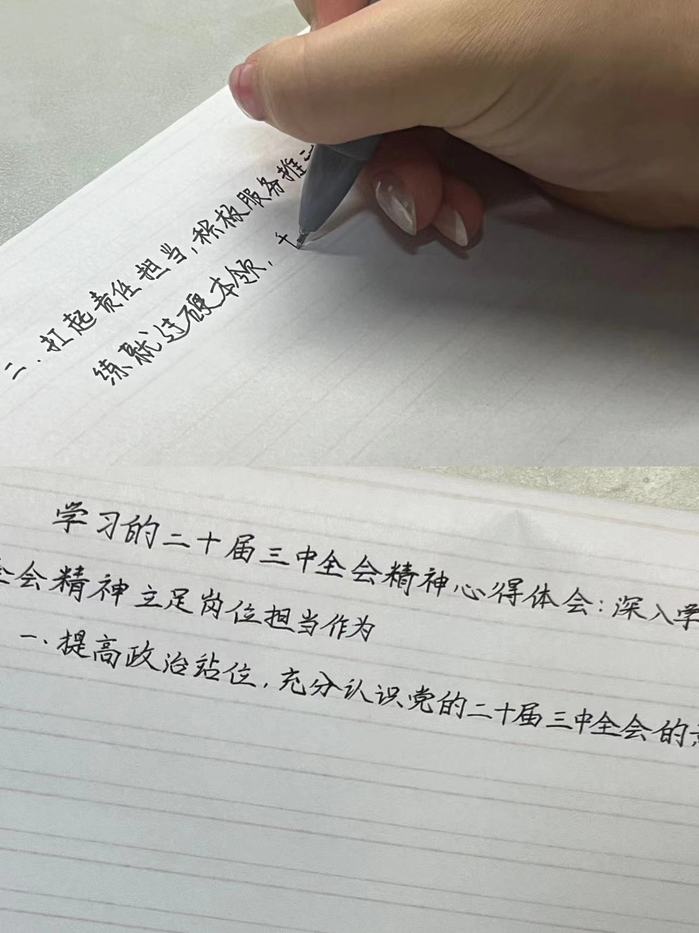 三.扛起责任担当,积极服务推
练就过硬本领,
学习的二十届三中全会精神心得体会:深入学
全会精神立足岗位担当作为
一.提高政治站位,充分认识党的二十届三中全会的